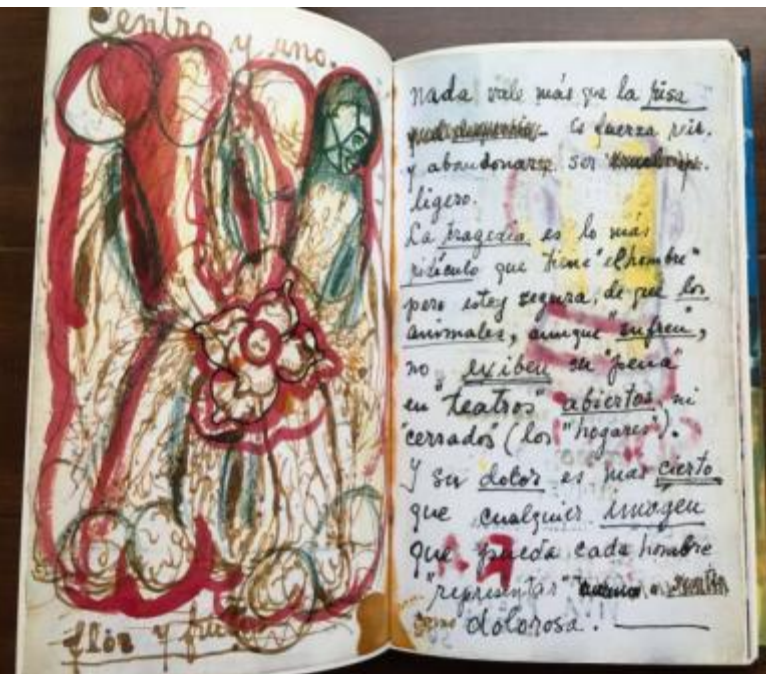 Centro y uno.
flor y fruto
nada vale más que la risa
Es fuerza reir.
y abandonarse. ser
ligero.
La tragedia es lo más
ridículo que tiene "el hombre"
pero estoy segura, de que los
animales, aunque "sufren",
no exiben su "pena"
en "teatros" abiertos, ni
"cerrados" (los "hogares").
Y su dolor es mas cierto
que cualquier imágen
que pueda cada hombre
"representar"
como dolorosa.